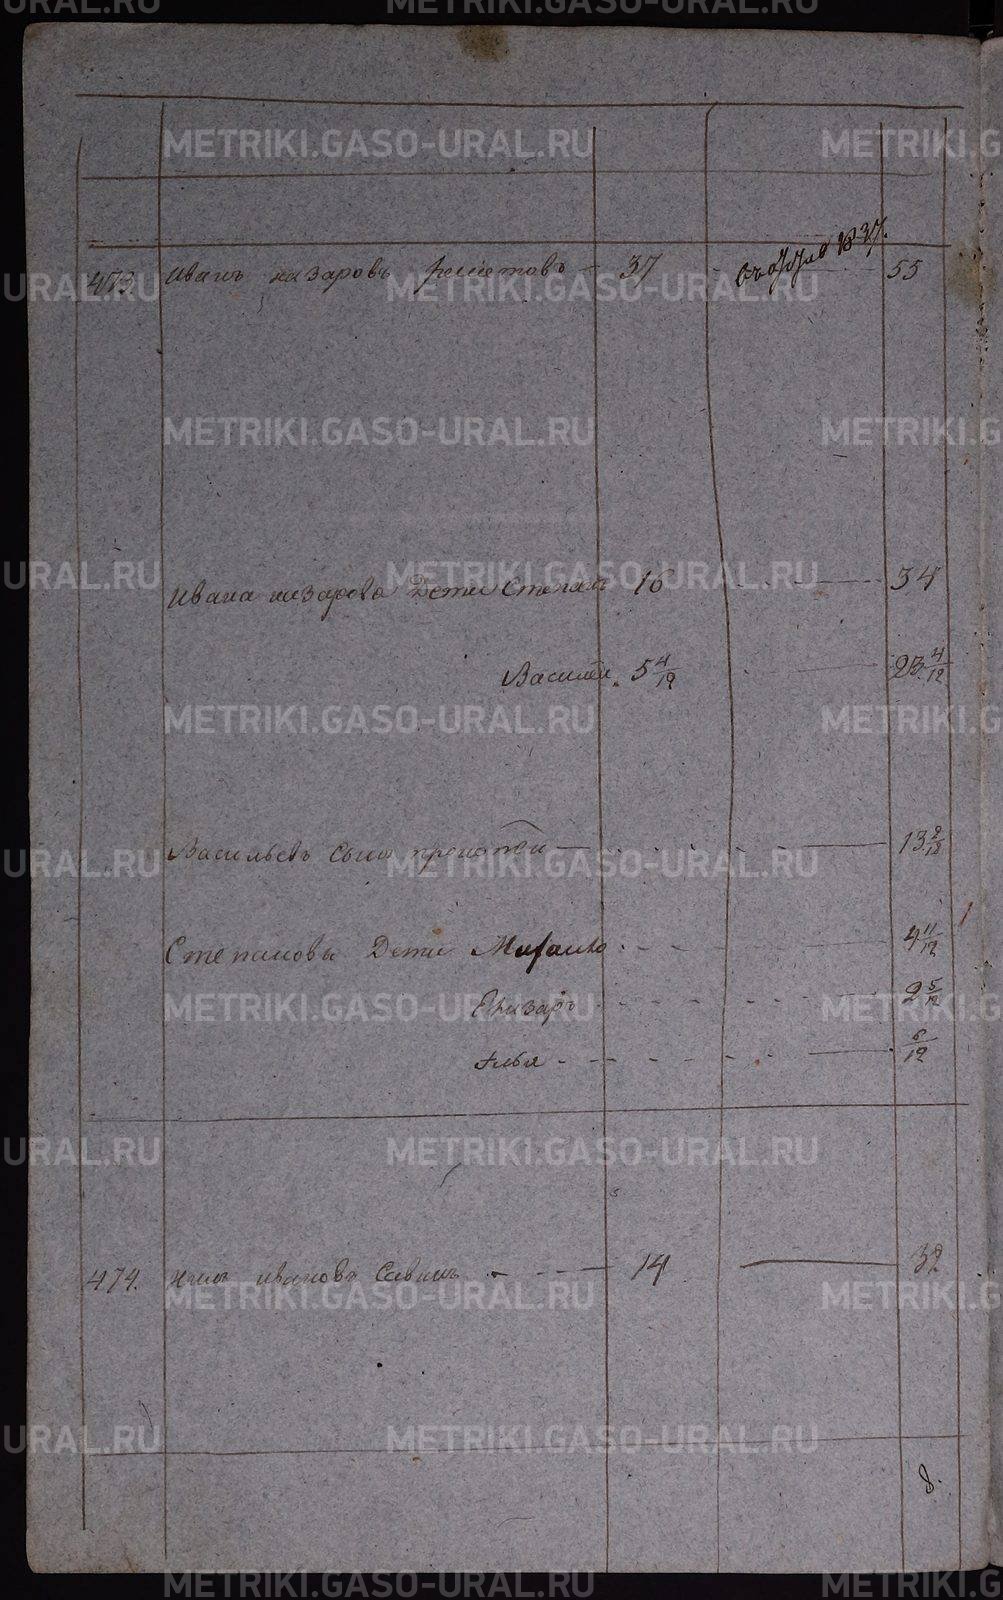 473. Иванъ назаровъ Решетовъ 37 1837. 55
Ивана назарова Дети Степанъ 16 34
Василей 5 4/12 23 4/12
Васильевъ Сынъ 13 2/12
Степановы Дети Михаило 4 11/12
Елизаръ 2 5/12
Илья 6/12
474. ивановъ Савинъ 14 32
8.
METRIKI.GASO-URAL.RU